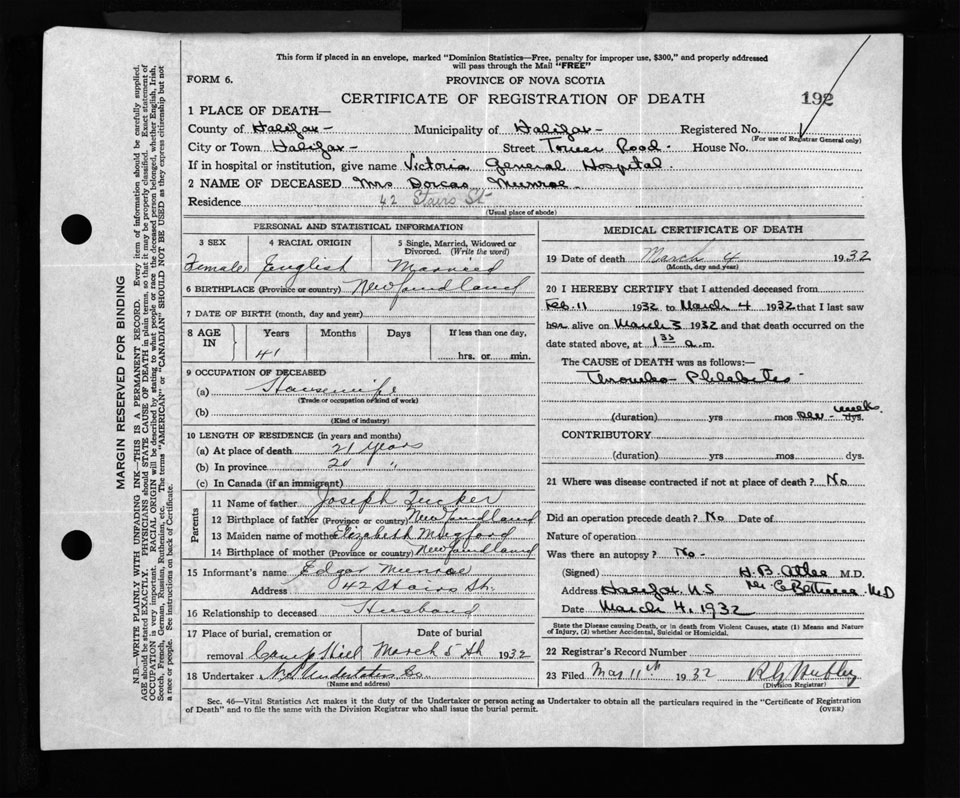 This form if placed in an envelope, marked "Dominion Statistics—Free, penalty for improper use, $300," and properly addressed
will pass through the Mail "FREE"
FORM 6.
PROVINCE OF NOVA SCOTIA
CERTIFICATE OF REGISTRATION OF DEATH
192
1 PLACE OF DEATH—
County of Halifax - Municipality of Halifax - Registered No.
(For use of Registrar General only)
City or Town Halifax - Street Tower Road - House No.
If in hospital or institution, give name Victoria General Hospital
2 NAME OF DECEASED Mrs Dorcas Munroe
Residence 42 Stairs St
(Usual place of abode)
PERSONAL AND STATISTICAL INFORMATION
3 SEX 4 RACIAL ORIGIN 5 Single, Married, Widowed or
Divorced. (Write the word)
Female English Married
6 BIRTHPLACE (Province or country) Newfoundland
7 DATE OF BIRTH (month, day and year)
8 AGE IN Years Months Days If less than one day,
41 hrs. or min.
9 OCCUPATION OF DECEASED
(a) Housewife
(Trade or occupation or kind of work)
(b)
(Kind of industry)
10 LENGTH OF RESIDENCE (in years and months)
(a) At place of death 21 Years
(b) In province 20 "
(c) In Canada (if an immigrant)
Parents
11 Name of father Joseph Tucker
12 Birthplace of father (Province or country) Newfoundland
13 Maiden name of mother Elizabeth Mugford
14 Birthplace of mother (Province or country) Newfoundland
15 Informant's name Edgar Munroe
Address 42 Stairs St.
16 Relationship to deceased Husband
17 Place of burial, cremation or Date of burial
removal Camp Hill March 5th 1932
18 Undertaker N.S. Undertaking Co
(Name and address)
MEDICAL CERTIFICATE OF DEATH
19 Date of death March 4 1932
(Month, day and year)
20 I HEREBY CERTIFY that I attended deceased from
Feb. 11 1932 to March 4 1932 that I last saw
her alive on March 3 1932 and that death occurred on the
date stated above, at 1 35 a.m.
The CAUSE OF DEATH was as follows:—
Thrombo-Phlebitis
(duration) yrs mos weeks dys.
CONTRIBUTORY
(duration) yrs mos dys.
21 Where was disease contracted if not at place of death? No
Did an operation precede death? No Date of
Nature of operation
Was there an autopsy? No -
(Signed) H.B. Atlee M.D.
Address Halifax N.S. MD
Date March 4, 1932
State the Disease causing Death, or in death from Violent Causes, state (1) Means and Nature
of Injury, (2) whether Accidental, Suicidal or Homicidal.
22 Registrar's Record Number
23 Filed Mar 11th 1932
(Division Registrar)
Sec. 46—Vital Statistics Act makes it the duty of the Undertaker or person acting as Undertaker to obtain all the particulars required in the "Certificate of Registration
of Death" and to file the same with the Division Registrar who shall issue the burial permit.
(OVER)
MARGIN RESERVED FOR BINDING
N.B.—WRITE PLAINLY WITH UNFADING INK—THIS IS A PERMANENT RECORD. Every item of information should be carefully supplied.
AGE should be stated EXACTLY. PHYSICIANS should STATE CAUSE OF DEATH in plain terms, so that it may be properly classified. Exact statement of
OCCUPATION is very important. RACIAL ORIGIN will be described by stating to what people or race the deceased person belonged, whether English, Irish,
Scotch, French, German, Russian, Ruthenian, etc. The terms "AMERICAN" or "CANADIAN" SHOULD NOT BE USED as they express citizenship but not
a race or people. See instructions on back of Certificate.